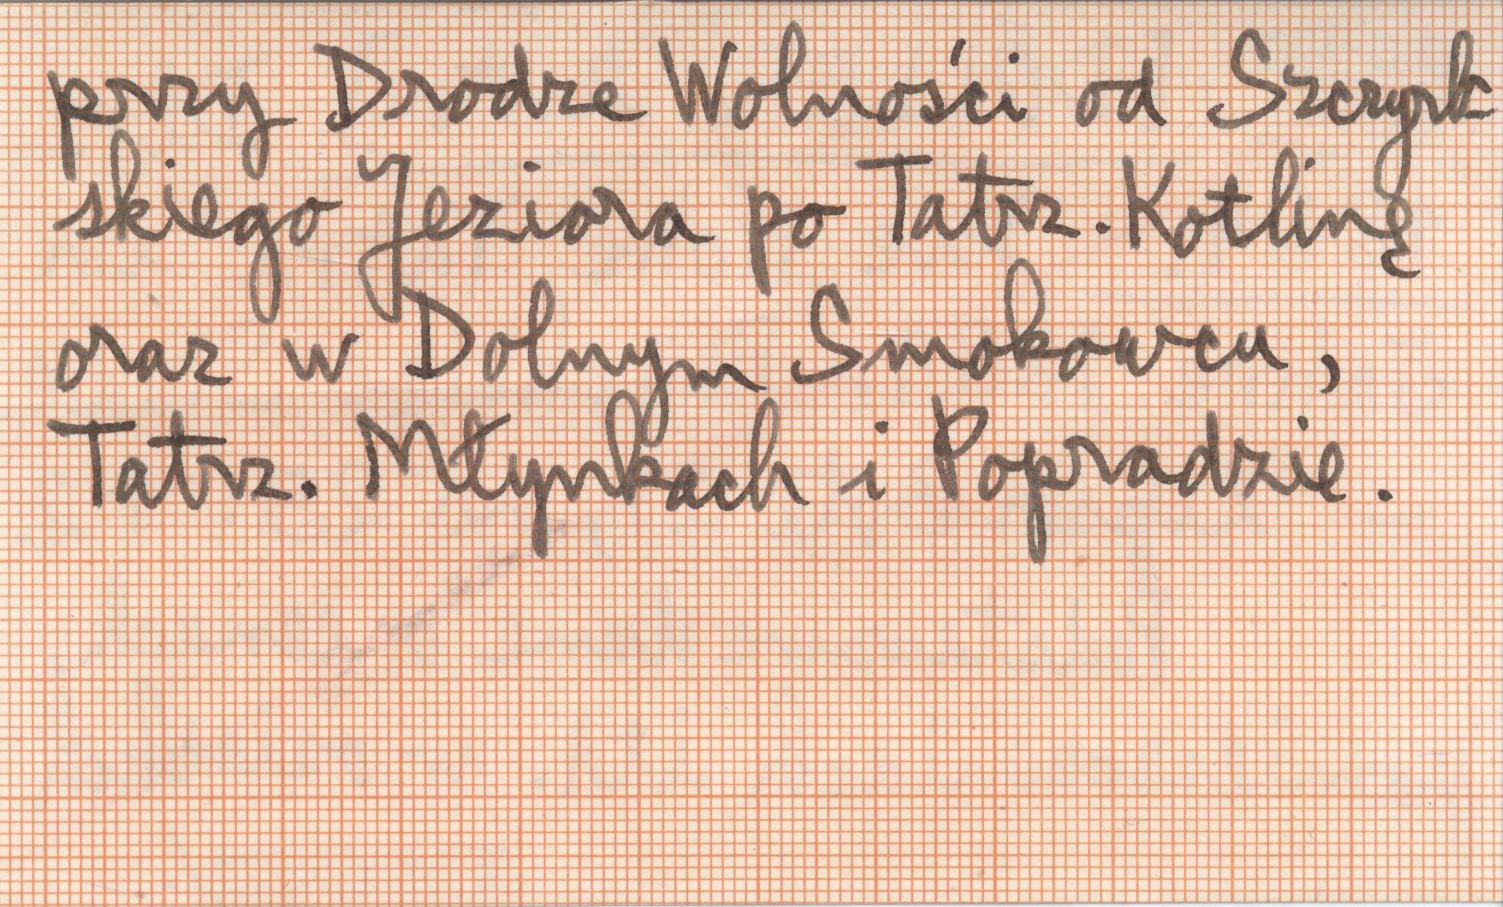 przy Drodze Wolności od Szczyrb
skiego Jeziora po Tatrz. Kotlinę
oraz w Dolnym Smokowcu,
Tatrz. Młynkach i Popradzie.